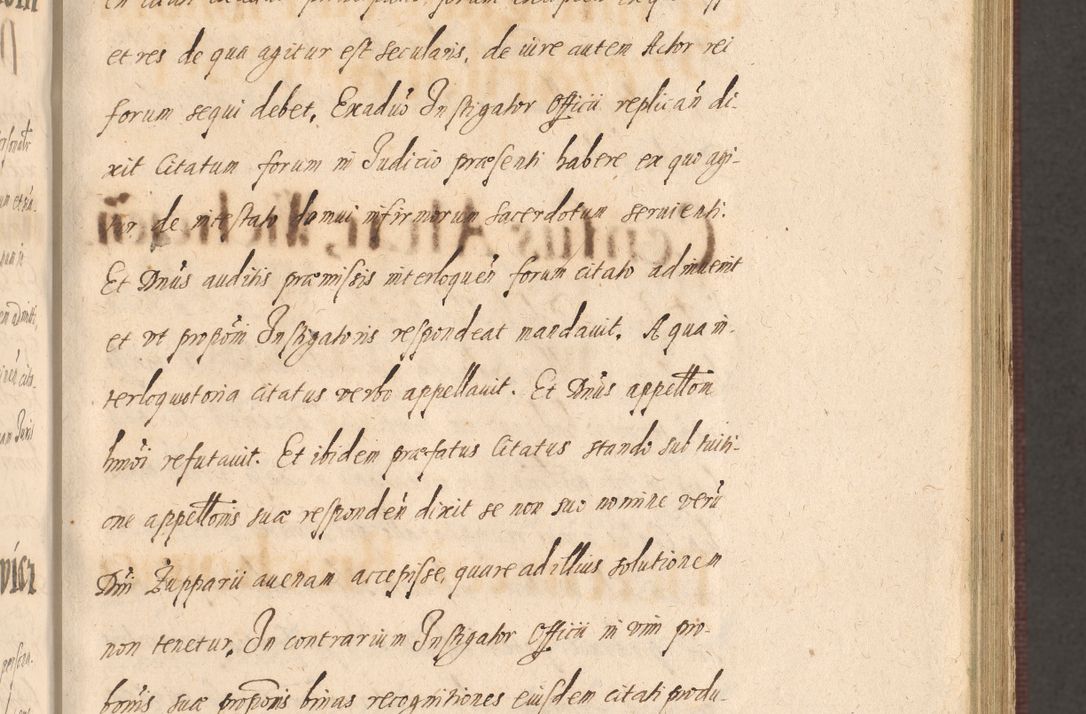 et res de qua agitur est secularis, de iure autem Actor rei
forum sequi debet. Exaduõ Instigator Officii replicañ di-
xit Citatum forum in Judicio præsenti habere, ex quo agi-
tur de intestato domui infirmorum sacerdotum seruienti.
Et Dñus auditis præmissis interloqueñ forum citato adinuenit
et vt proponi Instigatoris respondeat mandauit. A qua in-
terloquutoria Citatus verbo appellauit. Et Dñus appellõm
hmõi refutauit. Et ibidem præfatus Citatus stando sub tuiti-
one appellõnis suæ respondeñ dixit se non suo nomine verũ
Dñi Zupparii auenam accepisse, quare ad illius solutionem
non tenetur. In contrarium Instigator Officii in vim pro-
bõnis suæ propõnis binas recognitiones eiusdem citati produ-